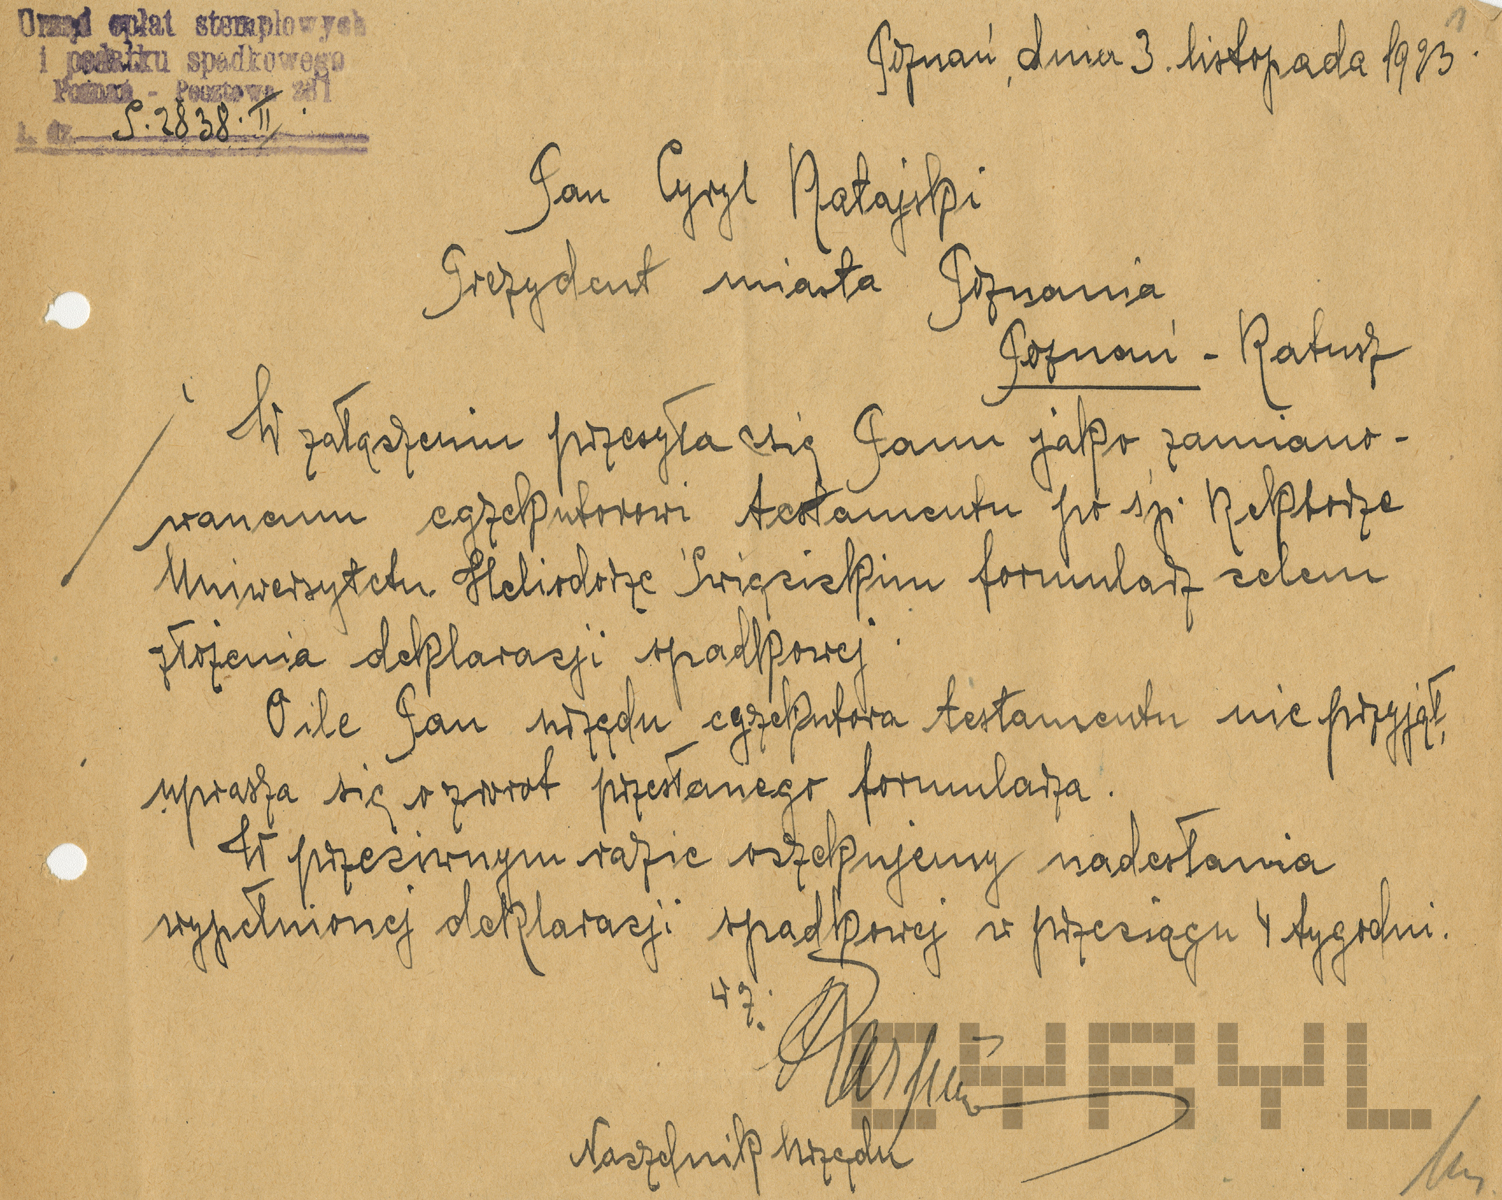 Urząd opłat stemplowych
i podatku spadkowego
Poznań - Pocztowa 281
L. dz. S. 2838. II
Poznań, dnia 3. listopada 1923.
Pan Cyryl Ratajski
Prezydent miasta Poznania
Poznań - Ratusz
W załączeniu przesyła się Panu jako zamiano-
wanemu egzekutorowi testamentu po śp. Rektorze
Uniwersytetu Heliodorze Święcickim formularz celem
złożenia deklaracji spadkowej.
O ile Pan urzędu egzekutora testamentu nie przyjął,
uprasza się o zwrot przesłanego formularza.
W przeciwnym razie oczekujemy nadesłania
wypełnionej deklaracji spadkowej w przeciągu 4 tygodni.
w z.
Naczelnik Urzędu
CYRYL